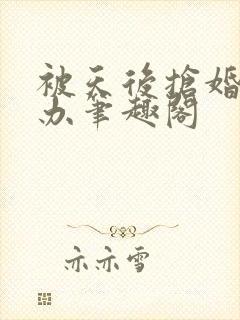 被天後搶婚
办筆趣閣
亦亦雪